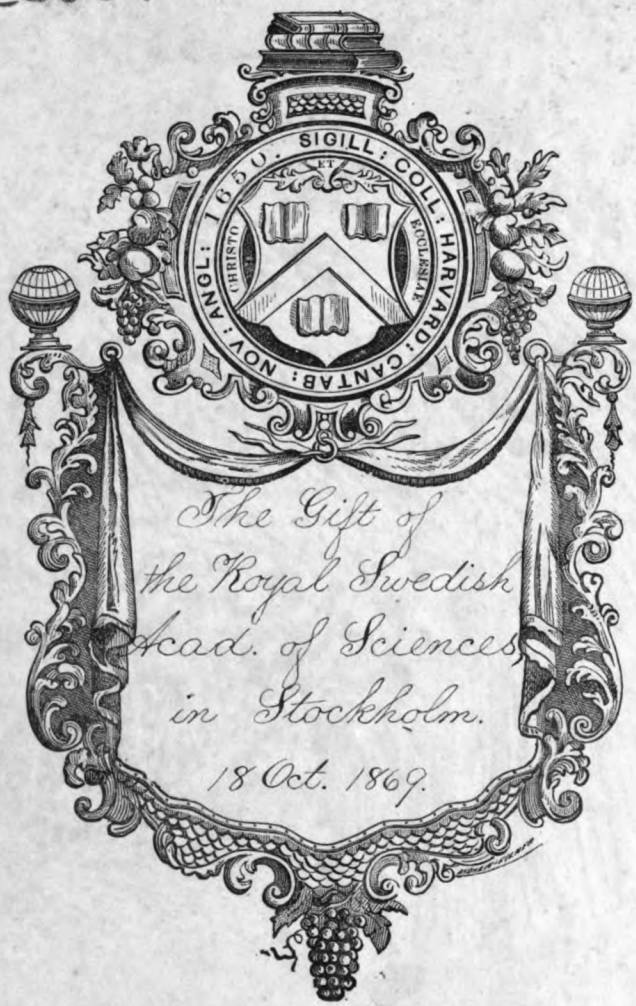 SIGILL: COLL: HARVARD: CANTAB: NOV: ANGL: 1650.
CHRISTO
ET
ECCLESIAE
The Gift of
the Royal Swedish
Acad. of Sciences,
in Stockholm.
18 Oct. 1869.